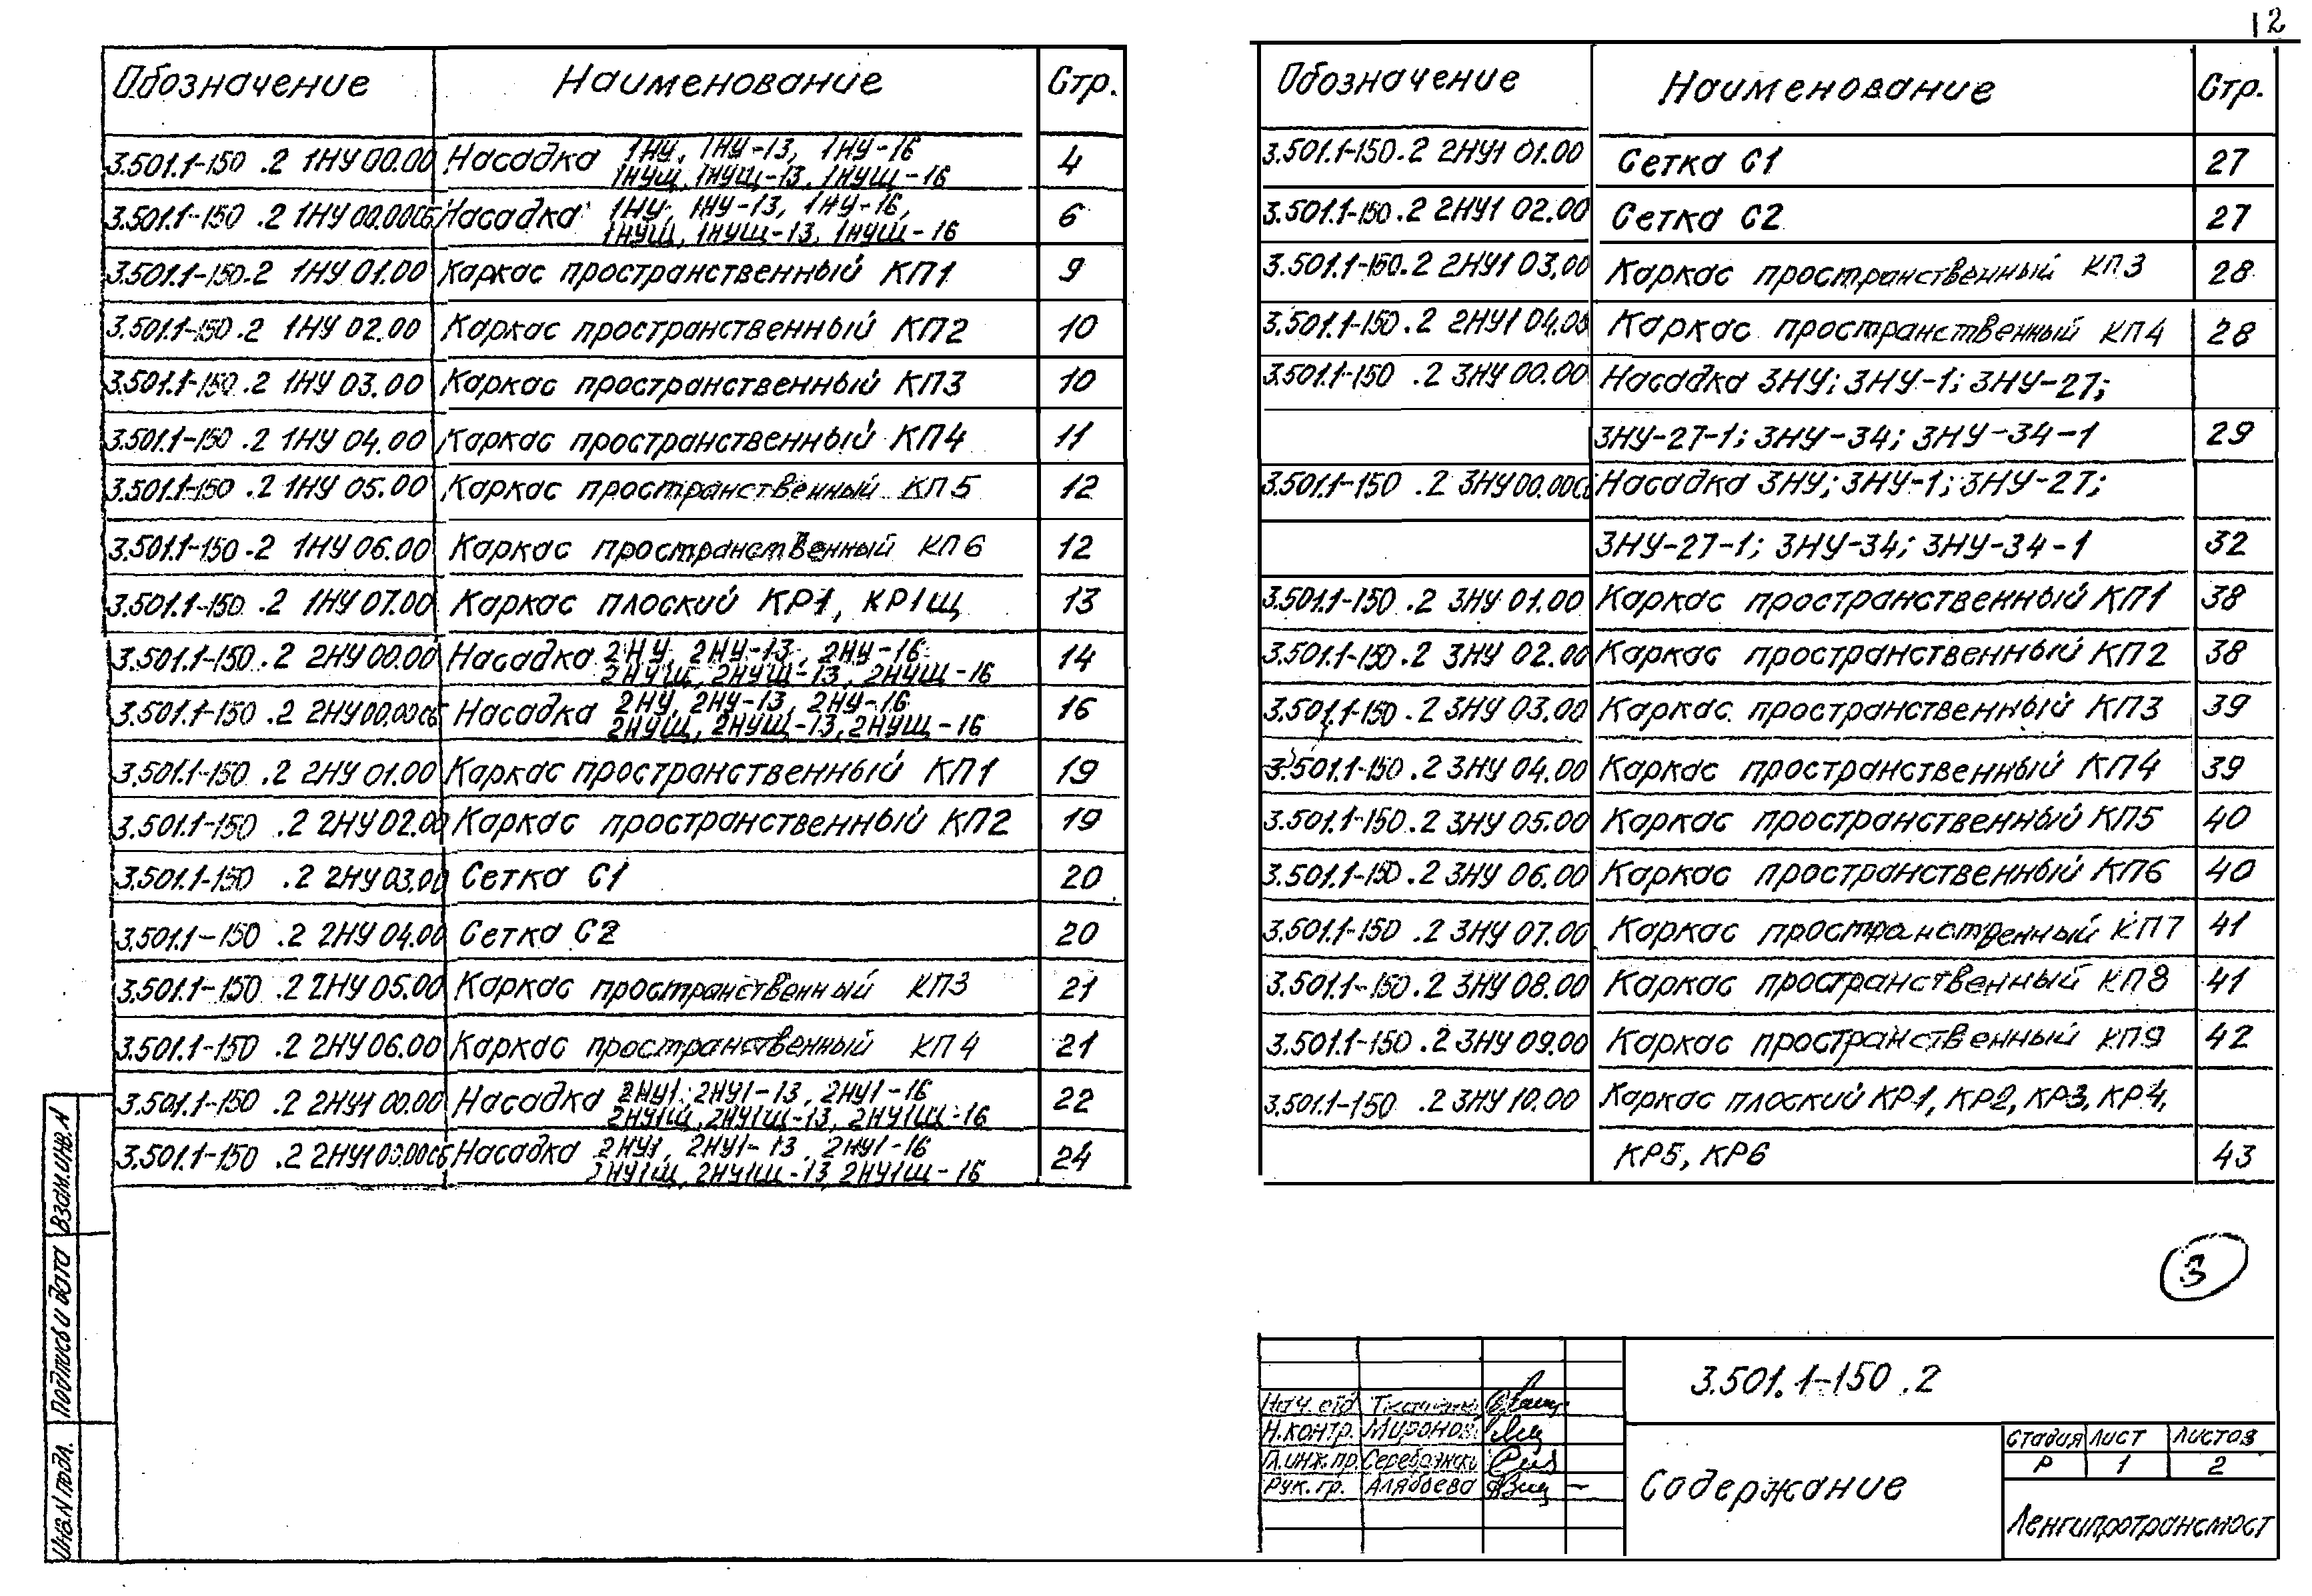 12
Обозначение Наименование Стр.
3.501.1-150 .2 1НУ 00.00 Насадка 1НУ, 1НУ-13, 1НУ-16 4
1НУЩ, 1НУЩ-13, 1НУЩ-16
3.501.1-150 .2 1НУ 00.00СБ Насадка 1НУ, 1НУ-13, 1НУ-16, 6
1НУЩ, 1НУЩ-13, 1НУЩ-16
3.501.1-150.2 1НУ 01.00 Каркас пространственный КП1 9
3.501.1-150.2 1НУ 02.00 Каркас пространственный КП2 10
3.501.1-150.2 1НУ 03.00 Каркас пространственный КП3 10
3.501.1-150 .2 1НУ 04.00 Каркас пространственный КП4 11
3.501.1-150 .2 1НУ 05.00 Каркас пространственный КП5 12
3.501.1-150.2 1НУ 06.00 Каркас пространственный КП6 12
3.501.1-150 .2 1НУ 07.00 Каркас плоский КР1, КР1Щ 13
3.501.1-150.2 2НУ 00.00 Насадка 2НУ, 2НУ-13, 2НУ-16 14
2НУЩ, 2НУЩ-13, 2НУЩ-16
3.501.1-150 .2 2НУ 00.00СБ Насадка 2НУ, 2НУ-13, 2НУ-16 16
2НУЩ, 2НУЩ-13, 2НУЩ-16
3.501.1-150 .2 2НУ 01.00 Каркас пространственный КП1 19
3.501.1-150 .2 2НУ 02.00 Каркас пространственный КП2 19
3.501.1-150 .2 2НУ 03.00 Сетка С1 20
3.501.1-150 .2 2НУ 04.00 Сетка С2 20
3.501.1-150 .2 2НУ 05.00 Каркас пространственный КП3 21
3.501.1-150 .2 2НУ 06.00 Каркас пространственный КП4 21
3.501.1-150 .2 2НУ1 00.00 Насадка 2НУ1, 2НУ1-13, 2НУ1-16 22
2НУ1Щ, 2НУ1Щ-13, 2НУ1Щ-16
3.501.1-150 .2 2НУ1 00.00СБ Насадка 2НУ1, 2НУ1-13, 2НУ1-16 24
2НУ1Щ, 2НУ1Щ-13, 2НУ1Щ-16
Обозначение Наименование Стр.
3.501.1-150.2 2НУ1 01.00 Сетка С1 27
3.501.1-150.2 2НУ1 02.00 Сетка С2 27
3.501.1-150.2 2НУ1 03.00 Каркас пространственный КП3 28
3.501.1-150.2 2НУ1 04.00 Каркас пространственный КП4 28
3.501.1-150 .2 3НУ 00.00 Насадка 3НУ; 3НУ-1; 3НУ-27;
3НУ-27-1; 3НУ-34; 3НУ-34-1 29
3.501.1-150 .2 3НУ 00.00СБ Насадка 3НУ; 3НУ-1; 3НУ-27;
3НУ-27-1; 3НУ-34; 3НУ-34-1 32
3.501.1-150 .2 3НУ 01.00 Каркас пространственный КП1 38
3.501.1-150.2 3НУ 02.00 Каркас пространственный КП2 38
3.501.1-150.2 3НУ 03.00 Каркас пространственный КП3 39
3.501.1-150.2 3НУ 04.00 Каркас пространственный КП4 39
3.501.1-150.2 3НУ 05.00 Каркас пространственный КП5 40
3.501.1-150.2 3НУ 06.00 Каркас пространственный КП6 40
3.501.1-150 .2 3НУ 07.00 Каркас пространственный КП7 41
3.501.1-150.2 3НУ 08.00 Каркас пространственный КП8 41
3.501.1-150.2 3НУ 09.00 Каркас пространственный КП9 42
3.501.1-150 .2 3НУ 10.00 Каркас плоский КР1, КР2, КР3, КР4,
КР5, КР6 43
3
3.501.1-150 .2
Нач. отд.
Н.контр. Миронов
Гл.инж.пр. Серебрянский
Рук.гр. Алябьева
Содержание
Стадия Лист Листов
Р 1 2
Ленгипротрансмост
Взам.инв.N
Подпись и дата
Инв.N подл.